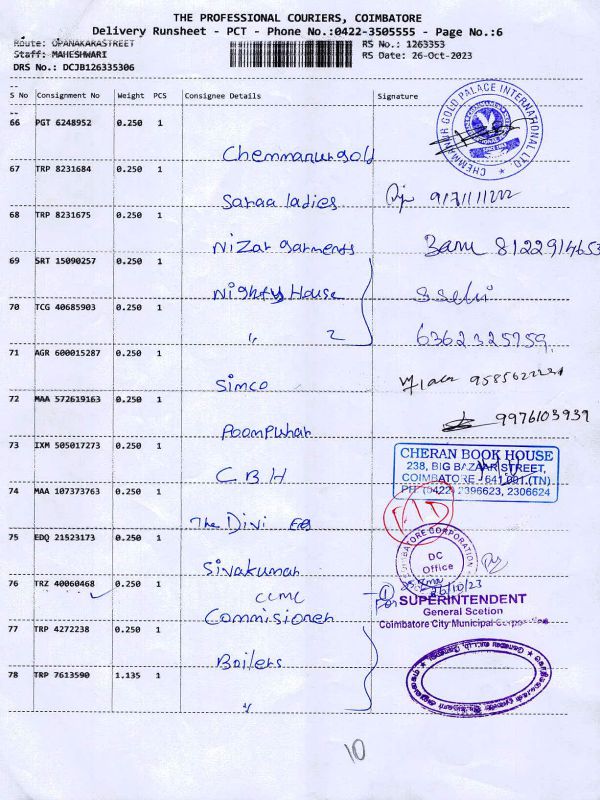 THE PROFESSIONAL COURIERS, COIMBATORE
Delivery Runsheet - PCT - Phone No.:0422-3505555 - Page No.:6
Route: OPANAKARASTREET RS No.: 1263353
Staff: MAHESHWARI RS Date: 26-Oct-2023
DRS No.: DCJB126335306
--
S No Consignment No Weight PCS Consignee Details Signature
--
66 PGT 6248952 0.250 1
Chemmanurgold
CHEMMANUR GOLD PALACE INTERNATIONAL LTD.
67 TRP 8231684 0.250 1
Saraa ladies
68 TRP 8231675 0.250 1
Nizar garments Banu
69 SRT 15090257 0.250 1
Nighty House S Selvi
70 TCG 40685903 0.250 1
" 2 6362325759
71 AGR 600015287 0.250 1
Simco
72 MAA 572619163 0.250 1
Poompuhar 9976103939
73 IXM 505017273 0.250 1
C.B.H
CHERAN BOOK HOUSE
238, BIG BAZAAR STREET,
COIMBATORE - 641 001.(TN)
PH: (0422) 2396623, 2306624
74 MAA 107373763 0.250 1
The Divi
75 EDQ 21523173 0.250 1
Sivakumar
DC
Office
76 TRZ 40060468 0.250 1
CCMC 26/10/23
Commisioner
For SUPERINTENDENT
General Scetion
Coimbatore City Municipal Corporation
77 TRP 4272238 0.250 1
Boilers
78 TRP 7613590 1.135 1
"
10